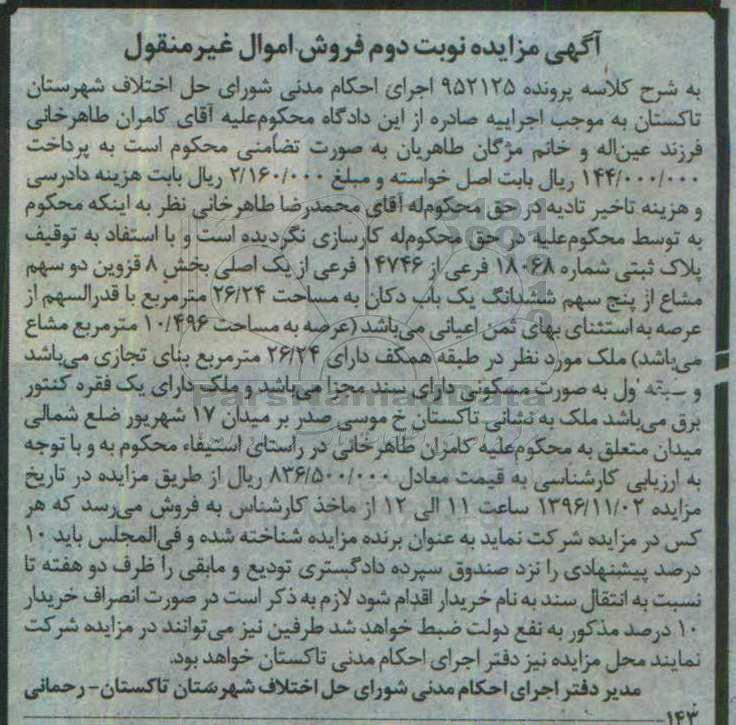 آگهی مزایده نوبت دوم فروش اموال غیرمنقول
به شرح کلاسه پرونده ۹۵۲۱۲۵ اجرای احکام مدنی شورای حل اختلاف شهرستان
تاکستان به موجب اجراییه صادره از این دادگاه محکوم‌علیه آقای کامران طاهرخانی
فرزند عین‌اله و خانم مژگان طاهریان به صورت تضامنی محکوم است به پرداخت
۱۴۴/۰۰۰/۰۰۰ ریال بابت اصل خواسته و مبلغ ۲/۱۶۰/۰۰۰ ریال بابت هزینه دادرسی
و هزینه تاخیر تادیه در حق محکوم‌له آقای محمدرضا طاهرخانی نظر به اینکه محکوم
به توسط محکوم‌علیه در حق محکوم‌له کارسازی نگردیده است و با استفاد به توقیف
پلاک ثبتی شماره ۱۸۰۶۸ فرعی از ۱۴۷۴۶ فرعی از یک اصلی بخش ۸ قزوین دو سهم
مشاع از پنج سهم ششدانگ یک باب دکان به مساحت ۲۶/۲۴ مترمربع با قدرالسهم از
عرصه به استثنای بهای ثمن اعیانی می‌باشد (عرصه به مساحت ۱۰/۴۹۶ مترمربع مشاع
می‌باشد) ملک مورد نظر در طبقه همکف دارای ۲۶/۲۴ مترمربع بنای تجاری می‌باشد
و ول به صورت مسکونی دارای سند مجزا می‌باشد و ملک دارای یک فقره کنتور
برق می‌باشد ملک به نشانی تاکستان خ موسی صدر بر میدان ۱۷ شهریور ضلع شمالی
میدان متعلق به محکوم‌علیه کامران طاهرخانی در راستای استیفاء محکوم به و با توجه
به ارزیابی کارشناسی به قیمت معادل ۸۳۶/۵۰۰/۰۰۰ ریال از طریق مزایده در تاریخ
مزایده ۱۳۹۶/۱۱/۰۲ ساعت ۱۱ الی ۱۲ از ماخذ کارشناس به فروش می‌رسد که هر
کس در مزایده شرکت نماید به عنوان برنده مزایده شناخته شده و فی‌المجلس باید ۱۰
درصد پیشنهادی را نزد صندوق سپرده دادگستری تودیع و مابقی را ظرف دو هفته تا
نسبت به انتقال سند به نام خریدار اقدام شود لازم به ذکر است در صورت انصراف خریدار
۱۰ درصد مذکور به نفع دولت ضبط خواهد شد طرفین نیز می‌توانند در مزایده شرکت
نمایند محل مزایده نیز دفتر اجرای احکام مدنی تاکستان خواهد بود.
مدیر دفتر اجرای احکام مدنی شورای حل اختلاف شهرستان تاکستان- رحمانی
۱۴۳
ParsNamadData